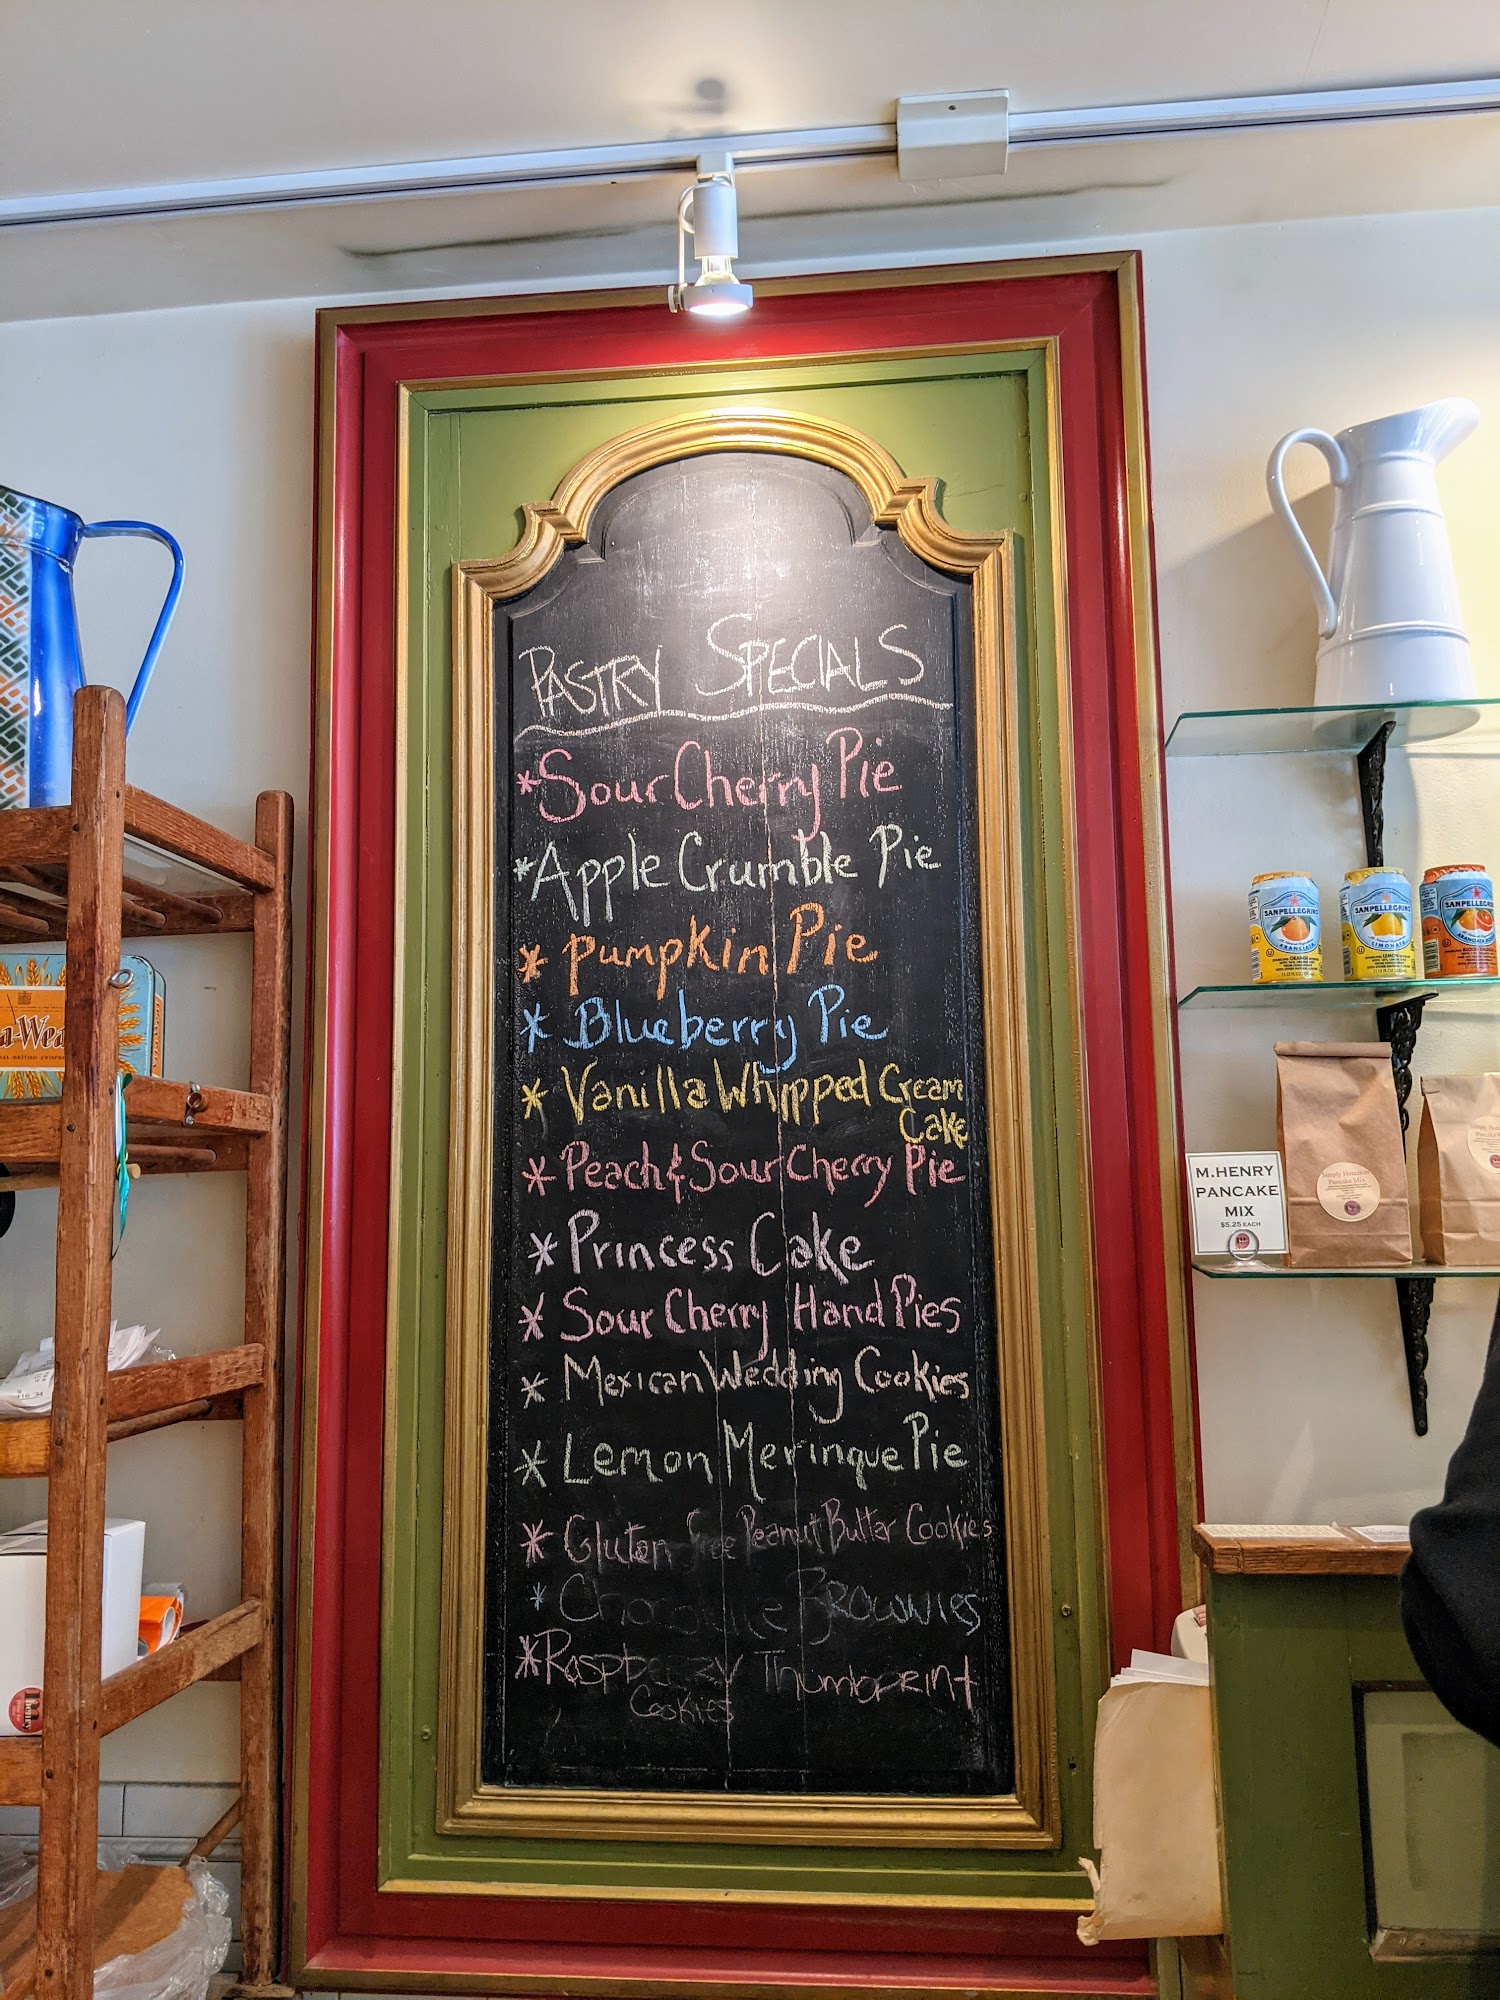 PASTRY SPECIALS
*Sour Cherry Pie
*Apple Crumble Pie
* Pumpkin Pie
* Blueberry Pie
* Vanilla Whipped Cream
Cake
* Peach & Sour Cherry Pie
* Princess Cake
* Sour Cherry Hand Pies
* Mexican Wedding Cookies
* Lemon Meringue Pie
* Gluten Free Peanut Butter Cookies
* Chocolate BROWNIES
*Raspberry Thumbprint
Cookies
SANPELLEGRINO
ARANCIATA
SANPELLEGRINO
LIMONATA
SANPELLEGRINO
M.HENRY
PANCAKE
MIX
$5.25 EACH
Pancake Mix
Pancake Mix